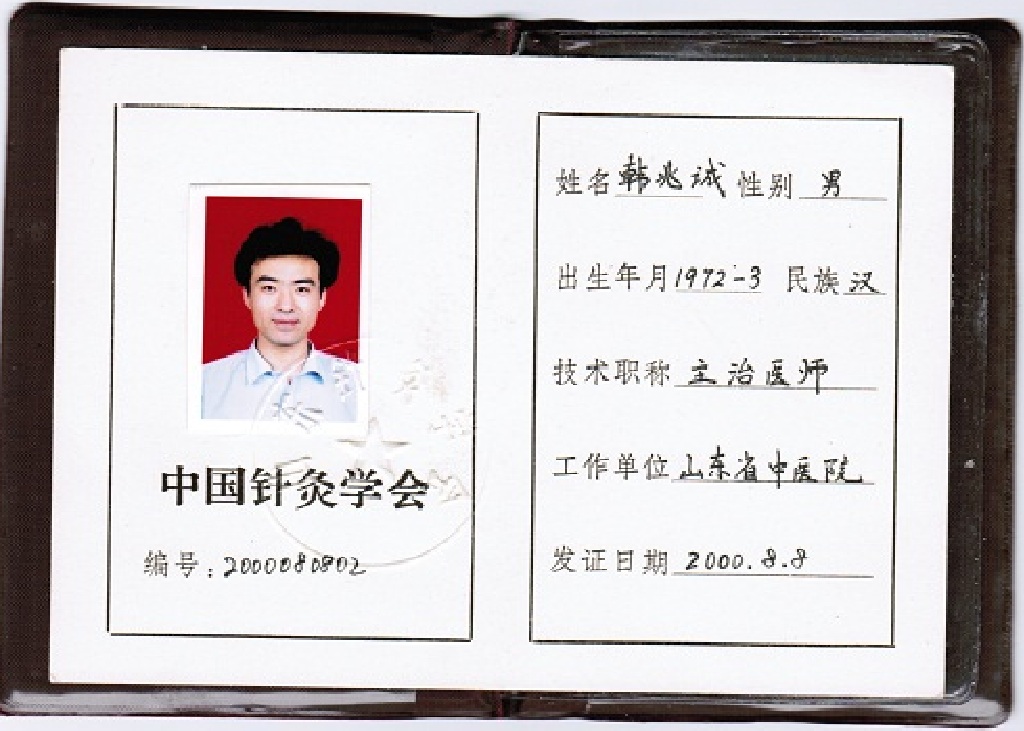 中国针灸学会
编号:2000080802
姓名 韩兆诚 性别 男
出生年月 1972-3 民族 汉
技术职称 主治医师
工作单位 山东省中医院
发证日期 2000.8.8